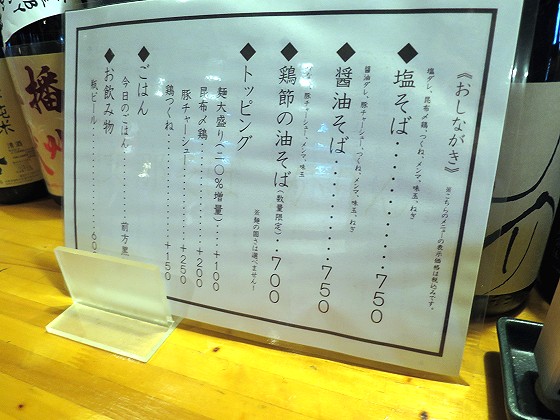 《おしながき》
※こちらのメニューの表示価格は税込みです。
塩ダレ、昆布〆鶏、つくね、メンマ、味玉、ねぎ
◆塩そば・・・・・・・・・・750
醤油ダレ、豚チャーシュー、つくね、メンマ、味玉、ねぎ
◆醤油そば・・・・・・・・・750
メンマ、味玉
◆鶏節の油そば(数量限定)・・700
※麺の固さは選べません!
◆トッピング
麺大盛り(二〇%増量)・・・+100
昆布〆鶏・・・・・・・・・+200
豚チャーシュー・・・・・・+250
鶏つくね・・・・・・・・・+150
◆ごはん
今日のごはん・・・・・・前方黒
◆お飲み物
瓶ビール・・・・・・・・60
播州
純米